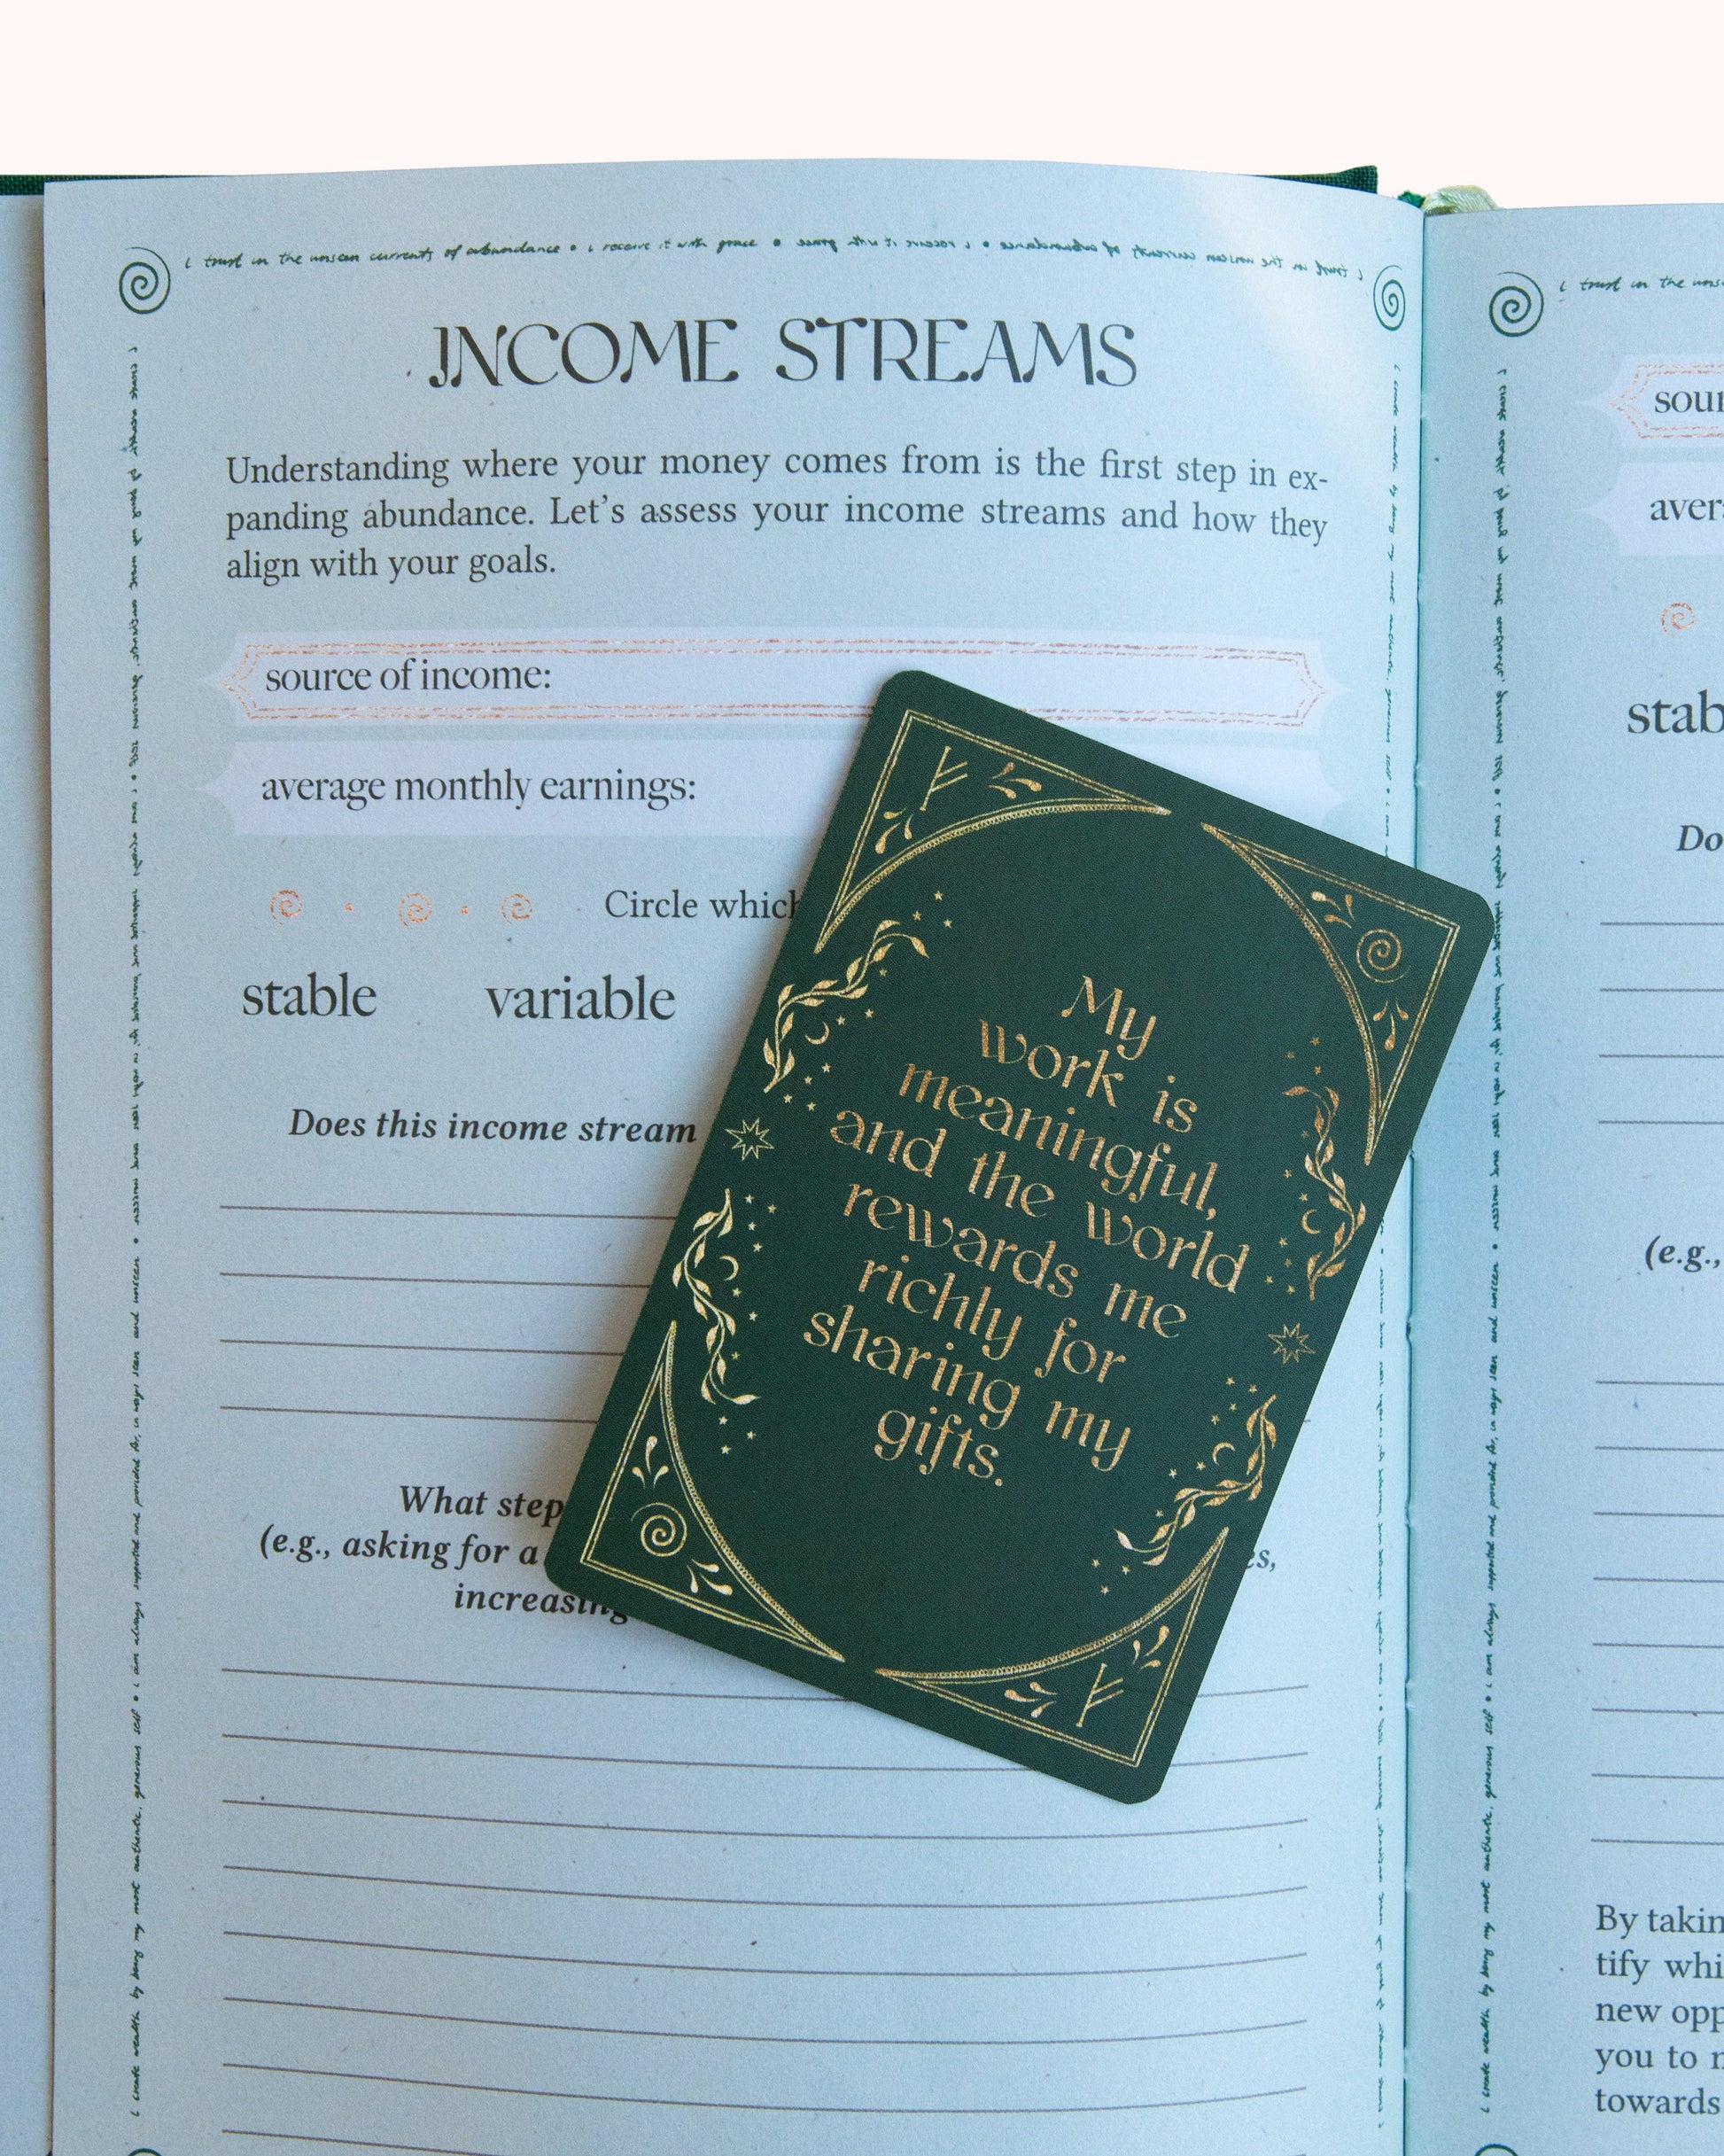 i trust in the unseen currents of abundance • i receive it with grace •
INCOME STREAMS
Understanding where your money comes from is the first step in ex-
panding abundance. Let's assess your income streams and how they
align with your goals.
source of income:
average monthly earnings:
Circle which
stable variable
Does this income stream
What step
(e.g., asking for a
es,
increasing
My
work is
meaningful,
and the world
rewards me
richly for
sharing my
gifts.
i create wealth by being my most authentic, generous self • i am always supported and provided for, in ways seen and unseen •
i trust in the unse
sour
aver
stab
Do
(e.g.,
By takin
tify whi
new opp
you to
towards
i create wealth by being my most authentic, generous self • i am always supported and provided for, in ways seen and unseen •